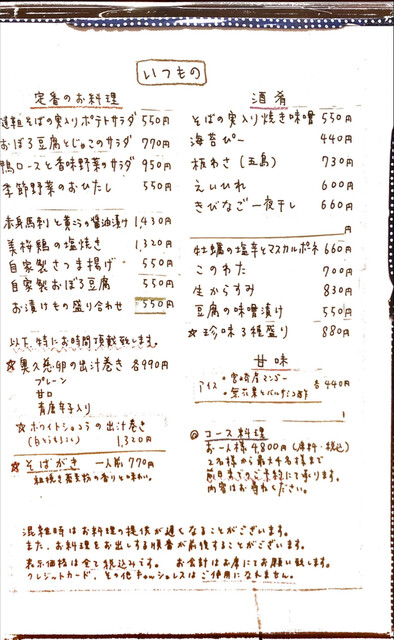 いつもの
定番のお料理
そばの実入りポテトサラダ 550円
おぼろ豆腐とじゃこのサラダ 770円
鴨ロースと香味野菜のサラダ 950円
季節野菜のおひたし 550円
赤身馬刺と黄にらの醤油漬け 1,430円
美桜鶏の塩焼き 1,320円
自家製さつま揚げ 550円
自家製おぼろ豆腐 550円
お漬けもの盛り合わせ 550円
以下、特にお時間頂戴致します。
☆奥久慈卵の出汁巻き 各990円
プレーン
甘口
青唐辛子入り
☆ホワイトショコラの出汁巻き
1,320円
☆そばがき 一人前 770円
粗挽き蕎麦粉の香りと味わい。
酒肴
そばの実入り焼き味噌 550円
海苔ぴー 440円
板わさ(五島) 730円
えいひれ 600円
きびなご一夜干し 660円
円
牡蠣の塩辛とマスカルポネ 660円
このわた 700円
生からすみ 830円
豆腐の味噌漬け 550円
☆珍味3種盛り 880円
甘味
アイス ・宮崎産マンゴー 各440円
・無花果とバルサミコ酢
◎コース料理
お一人様4,800円(席料・税込)
2名様から最大4名様まで
前日までのご予約にて承ります。
内容はお尋ねください。
混雑時はお料理の提供が遅くなることがございます。
また、お料理をお出しする順番が前後することがございます。
表示価格は全て税込みです。 お会計はお席にてお願い致します。
クレジットカード、その他キャッシュレスはご使用になれません。